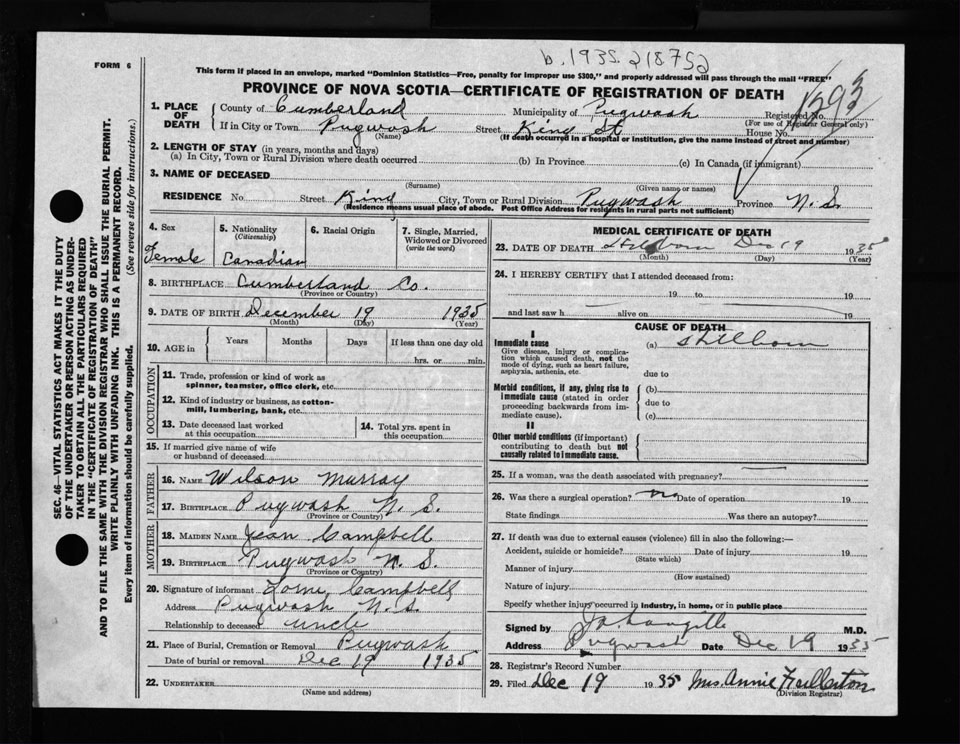 b. 1935. 218752
FORM 6
This form if placed in an envelope, marked "Dominion Statistics—Free, penalty for improper use $300," and properly addressed will pass through the mail "FREE"
PROVINCE OF NOVA SCOTIA—CERTIFICATE OF REGISTRATION OF DEATH
1. PLACE OF DEATH
County of Cumberland Municipality of Pugwash Registered No.
(For use of Registrar General only)
If in City or Town Pugwash Street King St House No.
(Name) (If death occurred in a hospital or institution, give the name instead of street and number)
2. LENGTH OF STAY (in years, months and days)
(a) In City, Town or Rural Division where death occurred (b) In Province (c) In Canada (if immigrant)
3. NAME OF DECEASED
(Surname) (Given name or names)
RESIDENCE No. Street King City, Town or Rural Division Pugwash Province N. S.
(Residence means usual place of abode. Post Office Address for residents in rural parts not sufficient)
4. Sex 5. Nationality (Citizenship) 6. Racial Origin 7. Single, Married, Widowed or Divorced (write the word)
Female Canadian
8. BIRTHPLACE Cumberland Co.
(Province or Country)
9. DATE OF BIRTH December 19 1935
(Month) (Day) (Year)
10. AGE in Years Months Days If less than one day old
hrs. or min.
OCCUPATION
11. Trade, profession or kind of work as
spinner, teamster, office clerk, etc.
12. Kind of industry or business, as cotton-
mill, lumbering, bank, etc.
13. Date deceased last worked
at this occupation
14. Total yrs. spent in
this occupation
15. If married give name of wife
or husband of deceased
FATHER
16. NAME Wilson Murray
17. BIRTHPLACE Pugwash N. S.
(Province or Country)
MOTHER
18. MAIDEN NAME Jean Campbell
19. BIRTHPLACE Pugwash N. S.
(Province or Country)
20. Signature of informant Lorne Campbell
Address Pugwash N. S.
Relationship to deceased uncle
21. Place of Burial, Cremation or Removal Pugwash
Date of burial or removal Dec 19 1935
22. UNDERTAKER
(Name and address)
MEDICAL CERTIFICATE OF DEATH
23. DATE OF DEATH Stillborn Dec 19 1935
(Month) (Day) (Year)
24. I HEREBY CERTIFY that I attended deceased from:
19 to 19
and last saw h alive on 19
CAUSE OF DEATH
I
Immediate cause
Give disease, injury or complica-
tion which caused death, not the
mode of dying, such as heart failure,
asphyxia, asthenia, etc.
(a) Stillborn
due to
Morbid conditions, if any, giving rise to
immediate cause (stated in order
proceeding backwards from im-
mediate cause).
(b)
due to
(c)
II
Other morbid conditions (if important)
contributing to death but not
causally related to immediate cause.
25. If a woman, was the death associated with pregnancy?
26. Was there a surgical operation? no Date of operation 19
State findings Was there an autopsy?
27. If death was due to external causes (violence) fill in also the following:—
Accident, suicide or homicide? Date of injury 19
(State which)
Manner of injury
(How sustained)
Nature of injury
Specify whether injury occurred in industry, in home, or in public place
Signed by Langille M.D.
Address Pugwash Date Dec 19 1935
28. Registrar's Record Number
29. Filed Dec 19 1935 Mrs. Annie Fullerton
(Division Registrar)
SEC. 46—VITAL STATISTICS ACT MAKES IT THE DUTY
OF THE UNDERTAKER OR PERSON ACTING AS UNDER-
TAKER TO OBTAIN ALL THE PARTICULARS REQUIRED
IN THE "CERTIFICATE OF REGISTRATION OF DEATH"
AND TO FILE THE SAME WITH THE DIVISION REGISTRAR WHO SHALL ISSUE THE BURIAL PERMIT.
WRITE PLAINLY WITH UNFADING INK. THIS IS A PERMANENT RECORD.
Every item of information should be carefully supplied. (See reverse side for instructions.)